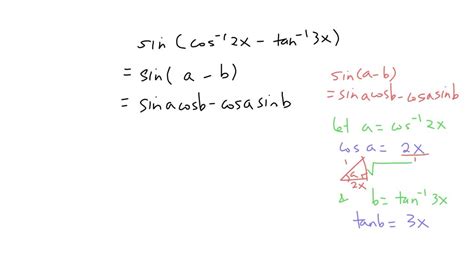 sin (cos⁻¹2x − tan⁻¹3x)
= sin( a − b)
= sin a cos b − cos a sin b
sin(a−b)
= sin a cos b − cos a sin b
let a = cos⁻¹2x
cos a = 2x/1
1
a
2x
& b = tan⁻¹3x
tan b = 3x